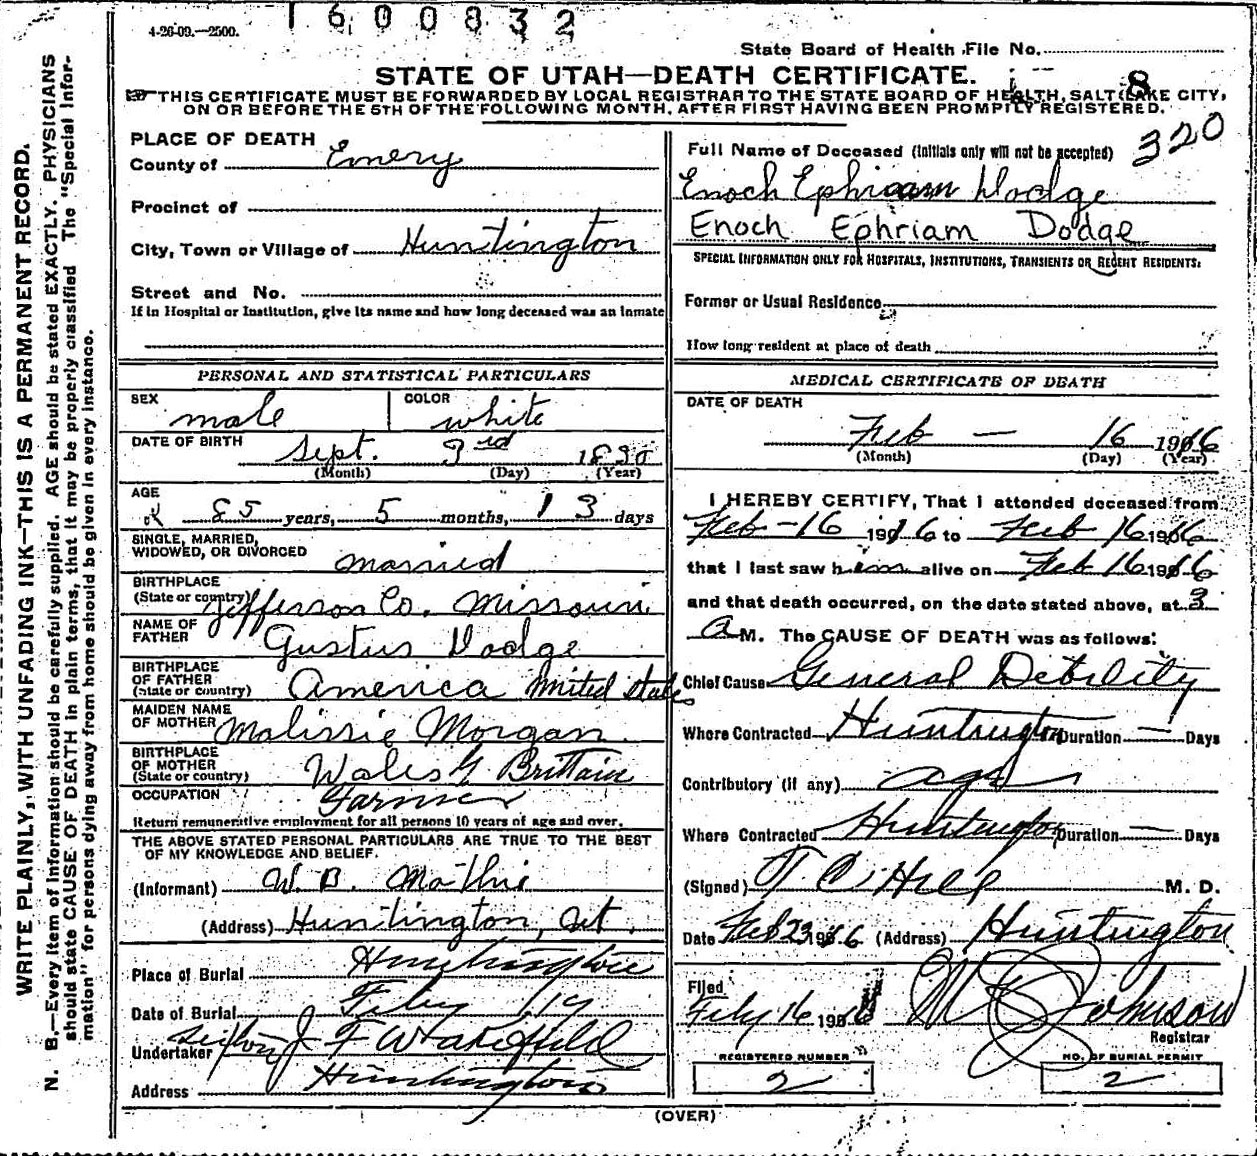 1600832
4-26-09.—2500.
State Board of Health File No.
STATE OF UTAH—DEATH CERTIFICATE.
8
THIS CERTIFICATE MUST BE FORWARDED BY LOCAL REGISTRAR TO THE STATE BOARD OF HEALTH, SALT LAKE CITY,
ON OR BEFORE THE 5TH OF THE FOLLOWING MONTH, AFTER FIRST HAVING BEEN PROMPTLY REGISTERED.
WRITE PLAINLY, WITH UNFADING INK—THIS IS A PERMANENT RECORD.
N. B.—Every item of information should be carefully supplied. AGE should be stated EXACTLY. PHYSICIANS
should state CAUSE OF DEATH in plain terms, that it may be properly classified The "Special Infor-
mation" for persons dying away from home should be given in every instance.
PLACE OF DEATH
County of Emery
Precinct of
City, Town or Village of Huntington
Street and No.
If in Hospital or Institution, give its name and how long deceased was an inmate
PERSONAL AND STATISTICAL PARTICULARS
SEX male COLOR white
DATE OF BIRTH Sept. 3rd 1830
(Month) (Day) (Year)
AGE
85 years, 5 months, 13 days
SINGLE, MARRIED,
WIDOWED, OR DIVORCED married
BIRTHPLACE
(State or country) Jefferson Co. Missouri
NAME OF
FATHER Gustus Dodge
BIRTHPLACE
OF FATHER
(State or country) America United States
MAIDEN NAME
OF MOTHER Malissie Morgan
BIRTHPLACE
OF MOTHER
(State or country) Wales G Brittain
OCCUPATION Farmer
Return remunerative employment for all persons 10 years of age and over.
THE ABOVE STATED PERSONAL PARTICULARS ARE TRUE TO THE BEST
OF MY KNOWLEDGE AND BELIEF.
(Informant) W. B. Mathis
(Address) Huntington, Ut.
Place of Burial Huntington
Date of Burial Feby 19
Undertaker Sexton J F Wakefield
Address Huntington
320
Full Name of Deceased (Initials only will not be accepted)
Enoch Ephriam Dodge
Enoch Ephriam Dodge
SPECIAL INFORMATION ONLY FOR HOSPITALS, INSTITUTIONS, TRANSIENTS OR RECENT RESIDENTS.
Former or Usual Residence
How long resident at place of death
MEDICAL CERTIFICATE OF DEATH
DATE OF DEATH
Feb — 16 1916
(Month) (Day) (Year)
I HEREBY CERTIFY, That I attended deceased from
Feb - 16 1916 to Feb 16 1916
that I last saw him alive on Feb 16 1916
and that death occurred, on the date stated above, at 3
A M. The CAUSE OF DEATH was as follows:
Chief Cause General Debility
Where Contracted Huntington Duration — Days
Contributory (if any) age
Where Contracted Huntington Duration — Days
(Signed) T. C. Hill M. D.
Date Feb 23 1916 (Address) Huntington
Filed
Feby 16 1916 Johnson
Registrar
REGISTERED NUMBER
2
NO. OF BURIAL PERMIT
2
(OVER)